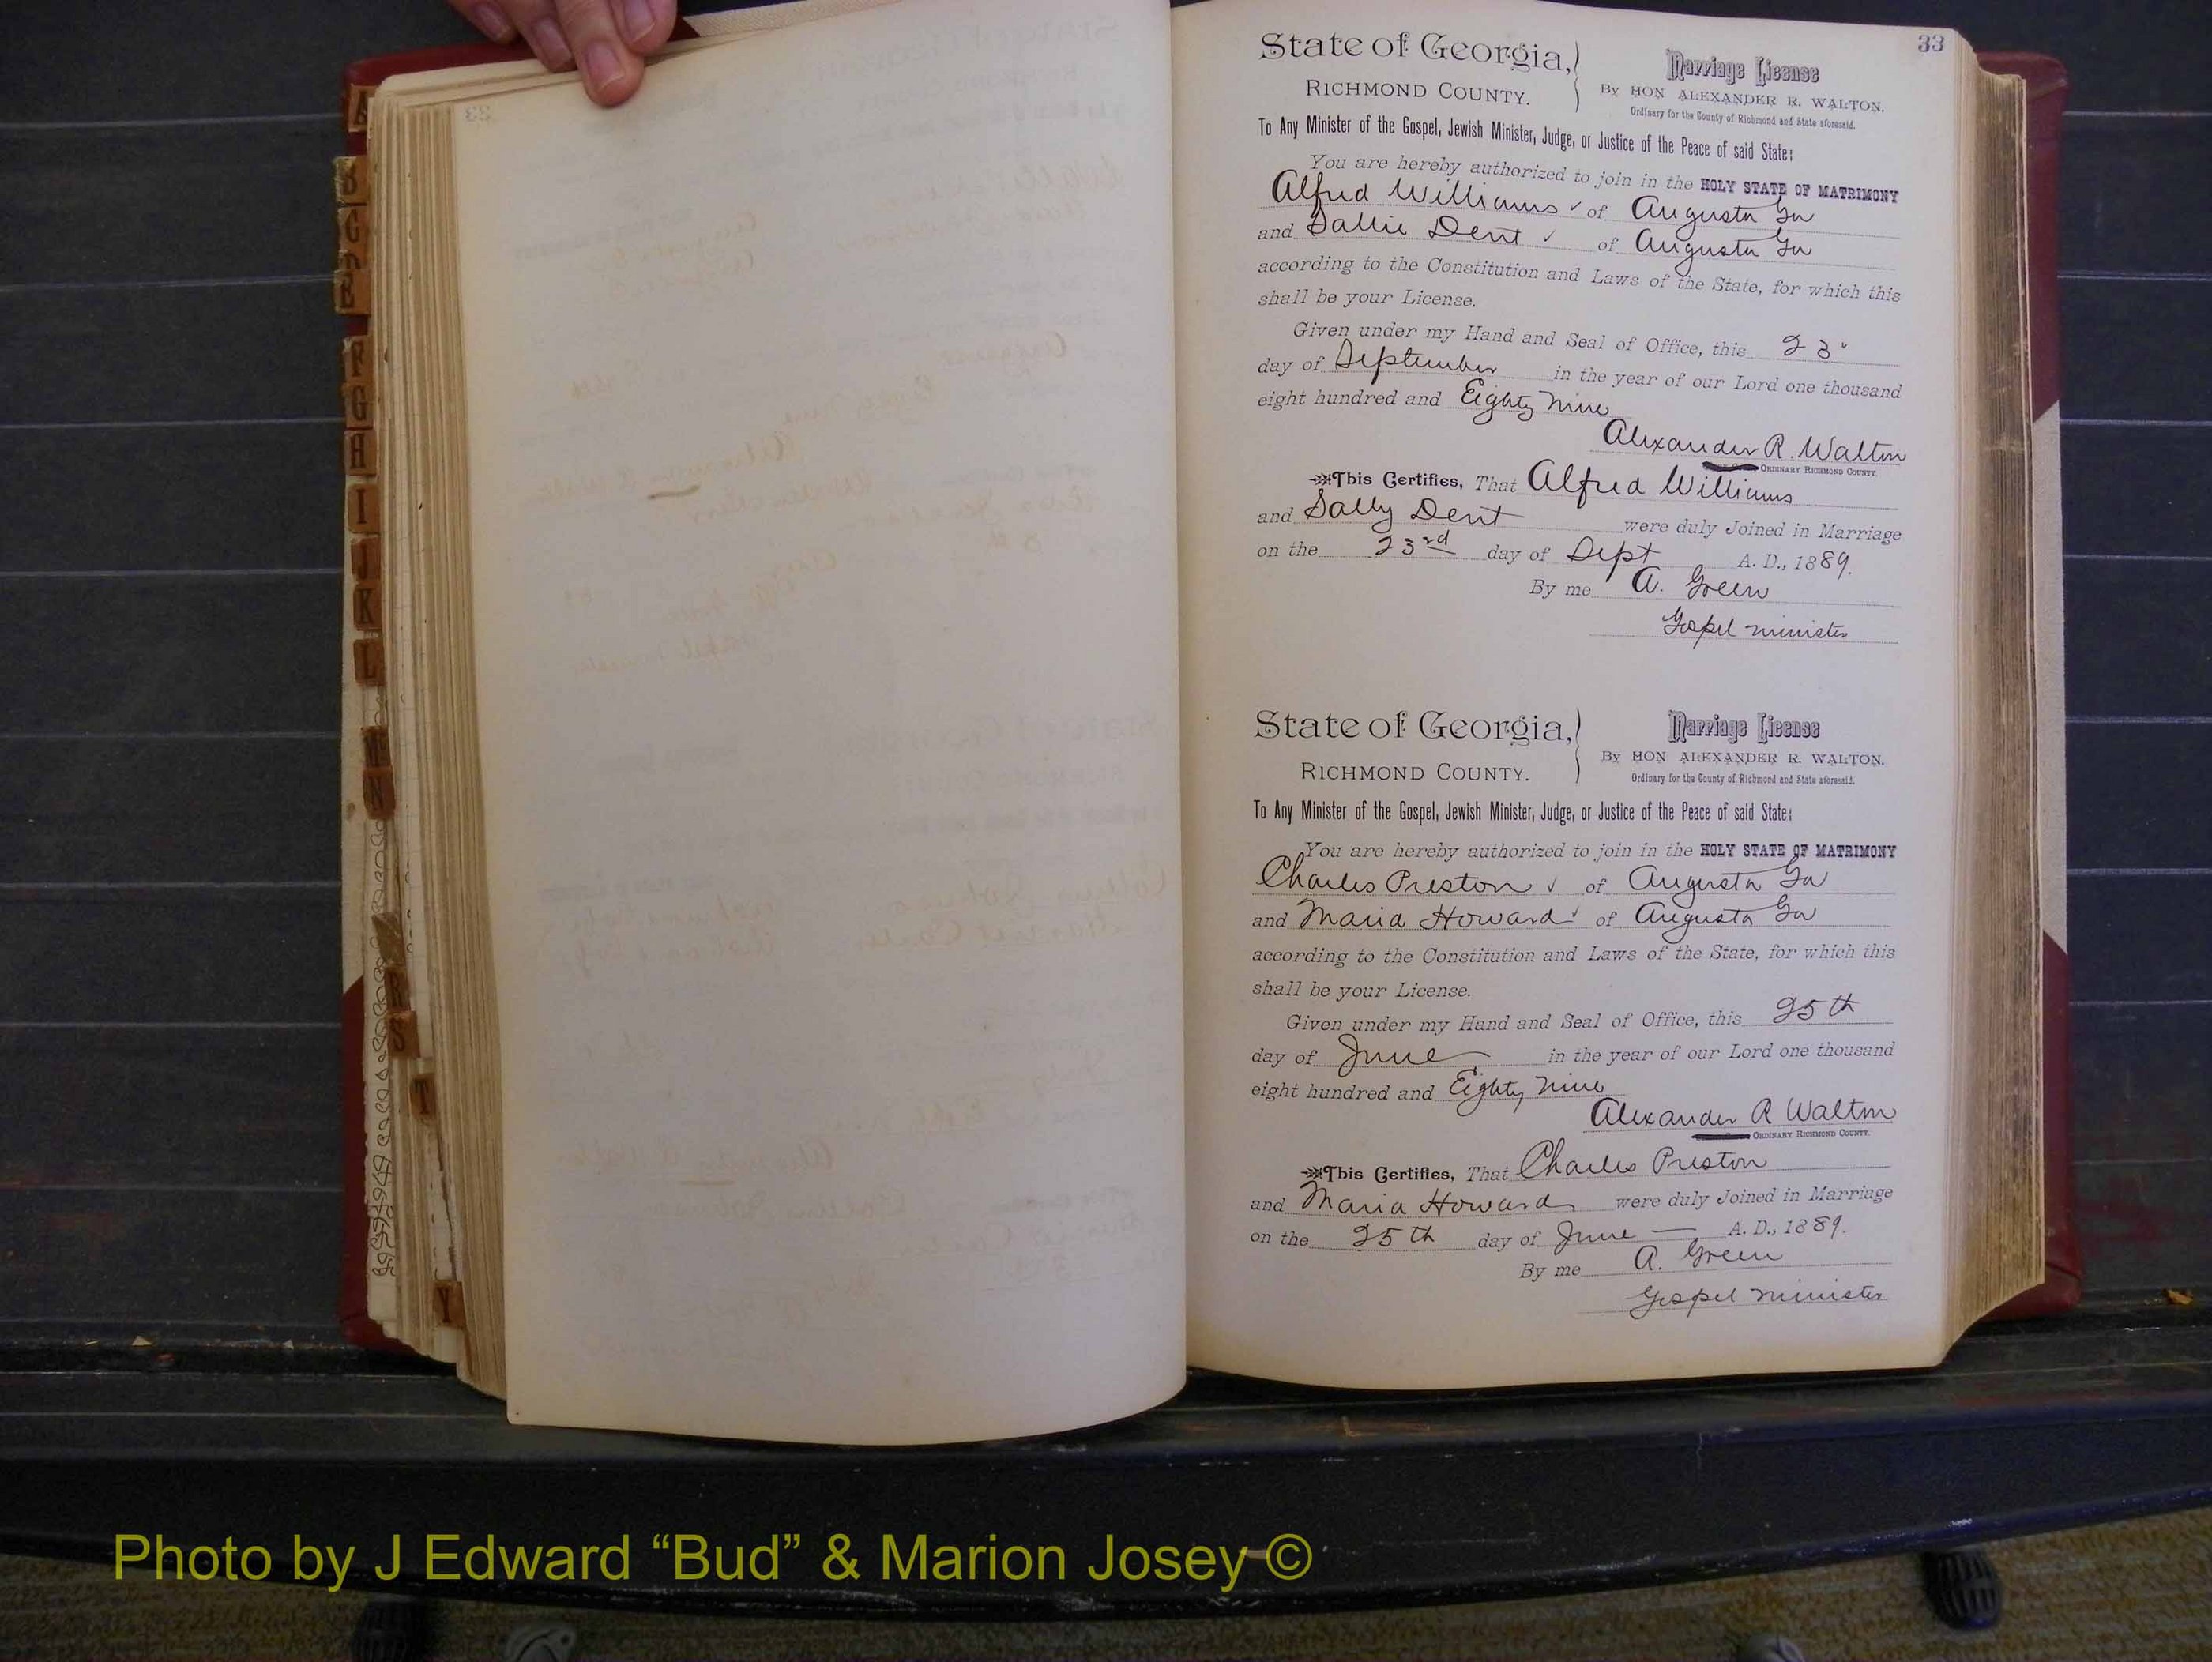 33
State of Georgia,
RICHMOND COUNTY.
Marriage License
By HON ALEXANDER R. WALTON.
Ordinary for the County of Richmond and State aforesaid.
To Any Minister of the Gospel, Jewish Minister, Judge, or Justice of the Peace of said State:
You are hereby authorized to join in the HOLY STATE OF MATRIMONY
Alfred Williams ✓ of Augusta Ga
and Sallie Dent ✓ of Augusta Ga
according to the Constitution and Laws of the State, for which this
shall be your License.
Given under my Hand and Seal of Office, this 23"
day of September in the year of our Lord one thousand
eight hundred and Eighty Nine
Alexander R. Walton
ORDINARY RICHMOND COUNTY.
This Certifies, That Alfred Williams
and Sally Dent were duly Joined in Marriage
on the 23rd day of Sept A. D., 1889.
By me A. Green
Gospel minister
State of Georgia,
RICHMOND COUNTY.
Marriage License
By HON ALEXANDER R. WALTON.
Ordinary for the County of Richmond and State aforesaid.
To Any Minister of the Gospel, Jewish Minister, Judge, or Justice of the Peace of said State:
You are hereby authorized to join in the HOLY STATE OF MATRIMONY
Charles Preston ✓ of Augusta Ga
and Maria Howard ✓ of Augusta Ga
according to the Constitution and Laws of the State, for which this
shall be your License.
Given under my Hand and Seal of Office, this 25th
day of June in the year of our Lord one thousand
eight hundred and Eighty Nine
Alexander R Walton
ORDINARY RICHMOND COUNTY.
This Certifies, That Charles Preston
and Maria Howard were duly Joined in Marriage
on the 25th day of June — A. D., 1889.
By me A. Green
Gospel minister
A
B
C
D
E
F
G
H
I
J
K
L
M
N
R
S
T
Y
Photo by J Edward “Bud” & Marion Josey ©